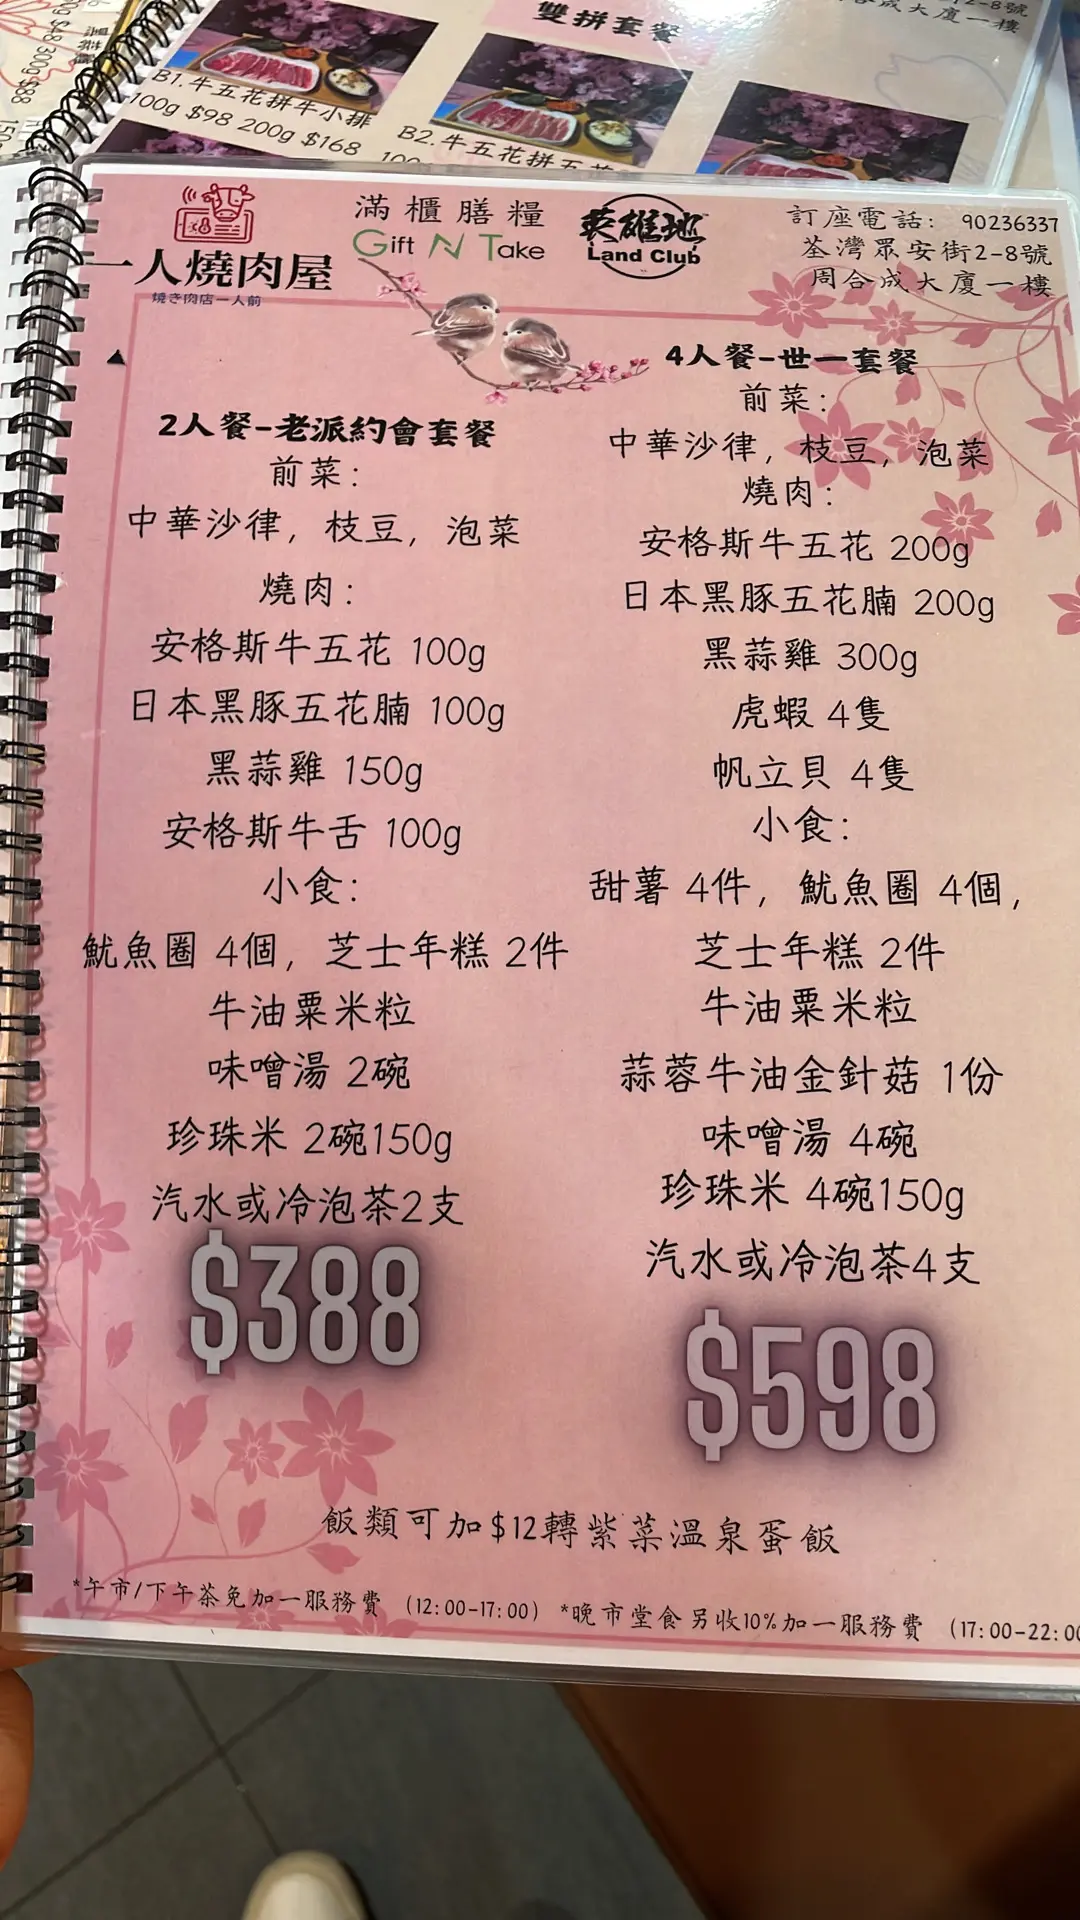 雙拼套餐
成大廈一樓
B1.牛五花拼牛小排
100g $98 200g $168
B2.牛五花拼五花
一人燒肉屋
焼き肉店一人前
滿櫃膳糧
Gift N Take
英雄地
Land Club
訂座電話: 90236337
荃灣眾安街2-8號
周合成大廈一樓
2人餐-老派約會套餐
前菜:
中華沙律, 枝豆, 泡菜
燒肉:
安格斯牛五花 100g
日本黑豚五花腩 100g
黑蒜雞 150g
安格斯牛舌 100g
小食:
魷魚圈 4個, 芝士年糕 2件
牛油粟米粒
味噌湯 2碗
珍珠米 2碗150g
汽水或冷泡茶2支
$388
4人餐-世一套餐
前菜:
中華沙律, 枝豆, 泡菜
燒肉:
安格斯牛五花 200g
日本黑豚五花腩 200g
黑蒜雞 300g
虎蝦 4隻
帆立貝 4隻
小食:
甜薯 4件, 魷魚圈 4個,
芝士年糕 2件
牛油粟米粒
蒜蓉牛油金針菇 1份
味噌湯 4碗
珍珠米 4碗150g
汽水或冷泡茶4支
$598
飯類可加$12轉紫菜溫泉蛋飯
*午市/下午茶免加一服務費 (12:00-17:00) *晚市堂食另收10%加一服務費 (17:00-22:00